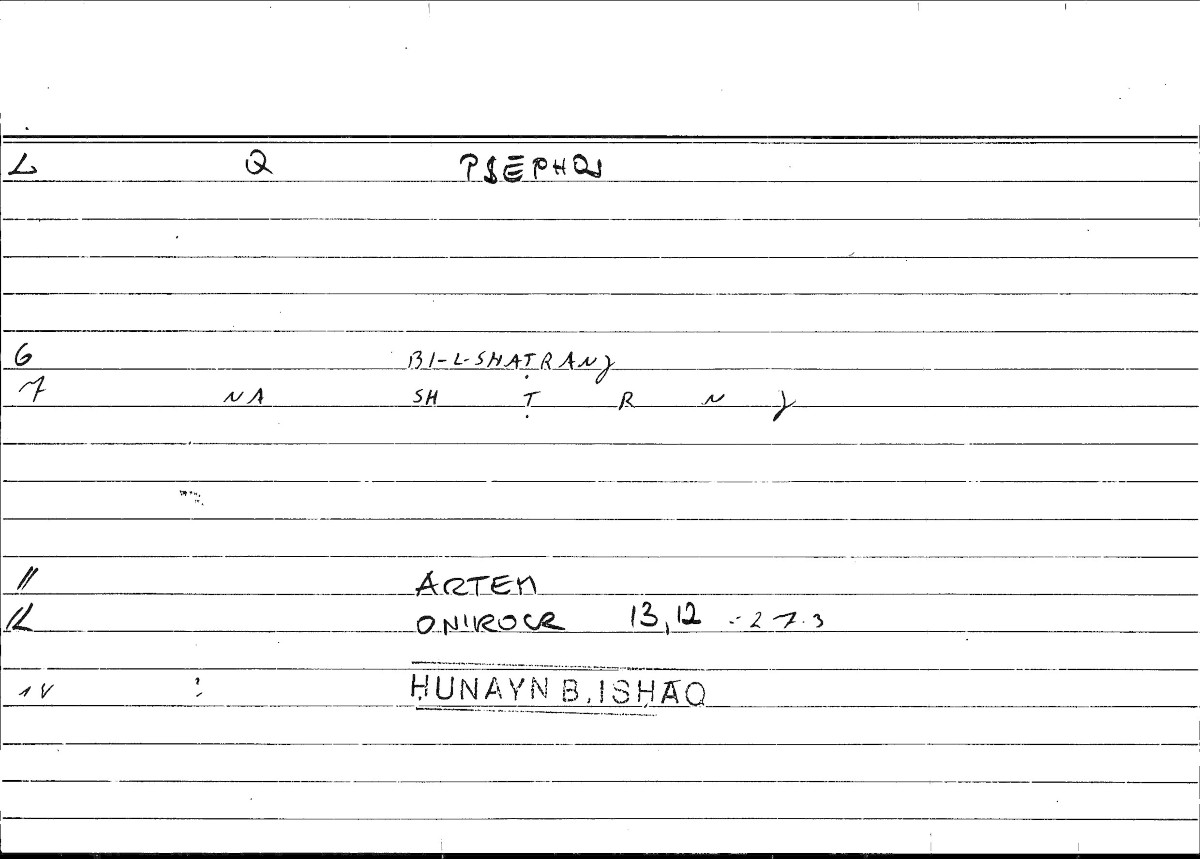 L Q PSEPHOS
6 BI-L-SHAṬRANJ
7 NA SH Ṭ R N J
11 ARTEM
12 ONIROCR 13,12 -27.3
14 : ḤUNAYN B. ISḤĀQ